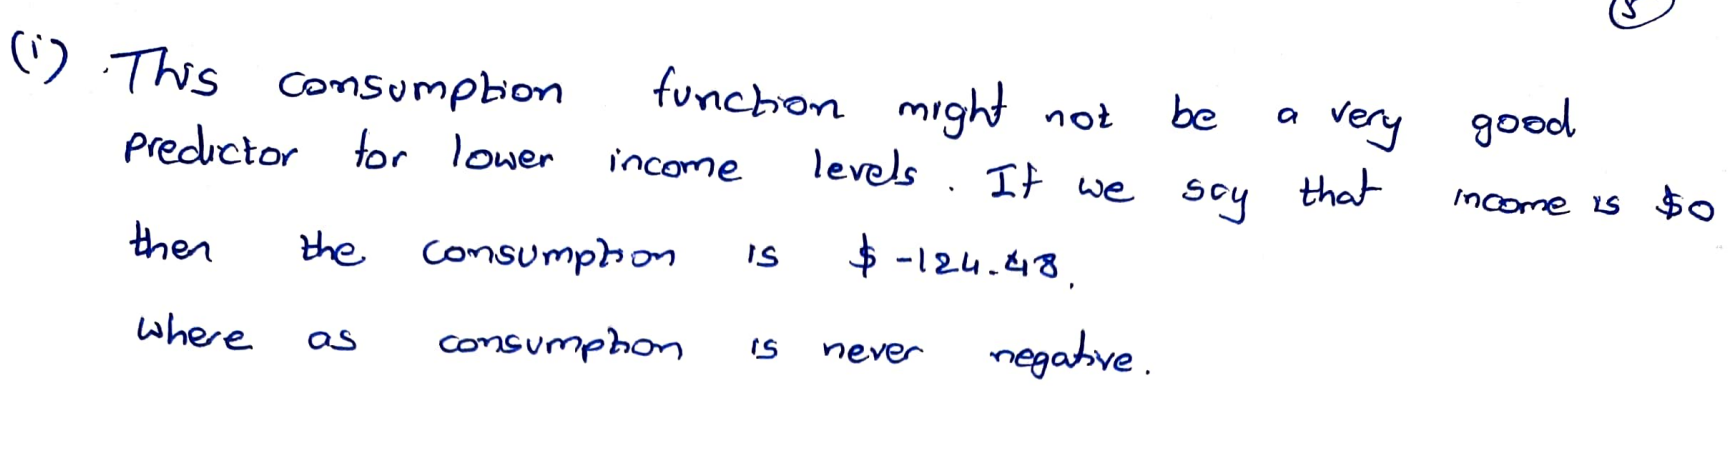 5
(i) This consumption function might not be a very good
predictor for lower income levels. If we say that income is $0
then the consumption is $-124.48.
where as consumption is never negative.